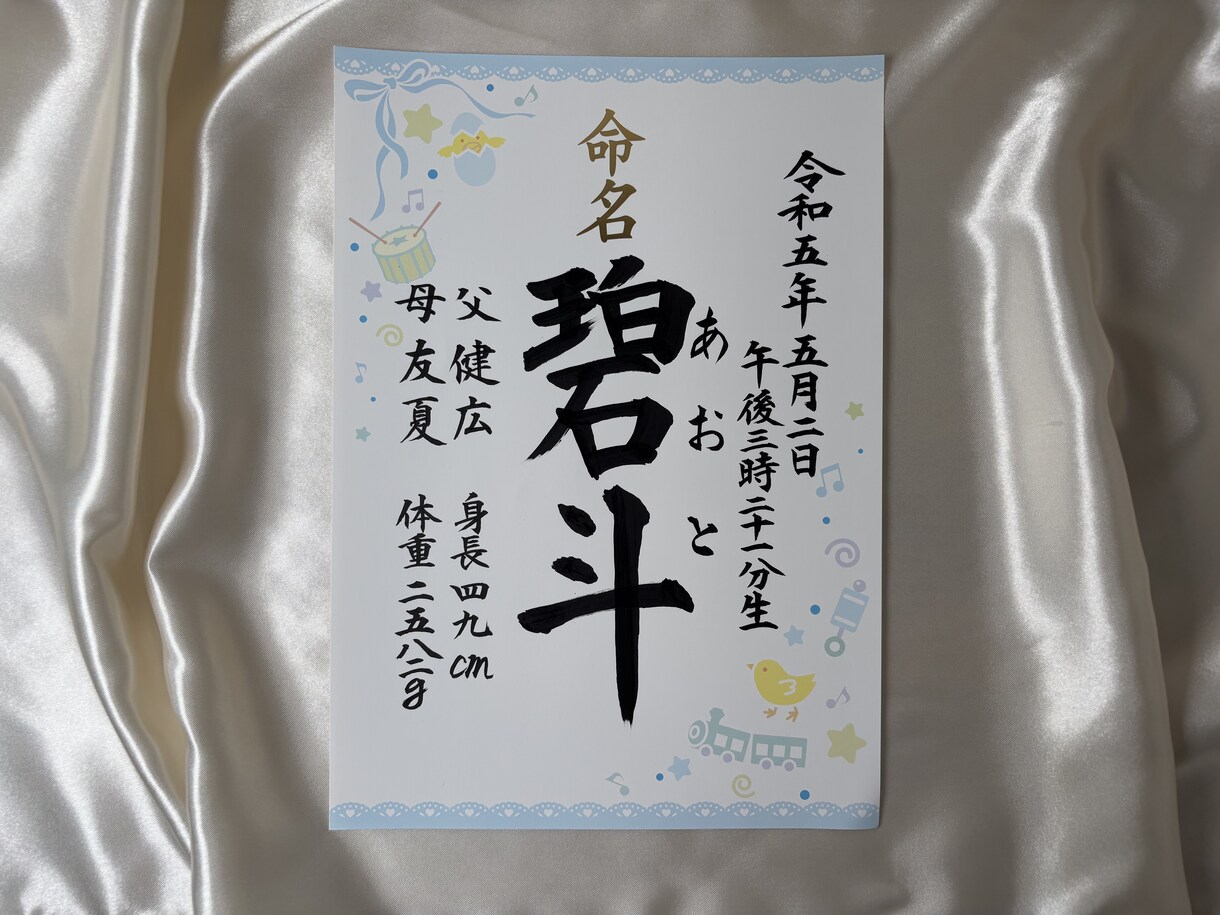 令和五年 五月二日
午後三時二十一分生
命名
碧斗
あおと
父 健広
母 友夏
身長 四九cm
体重 二五八二g